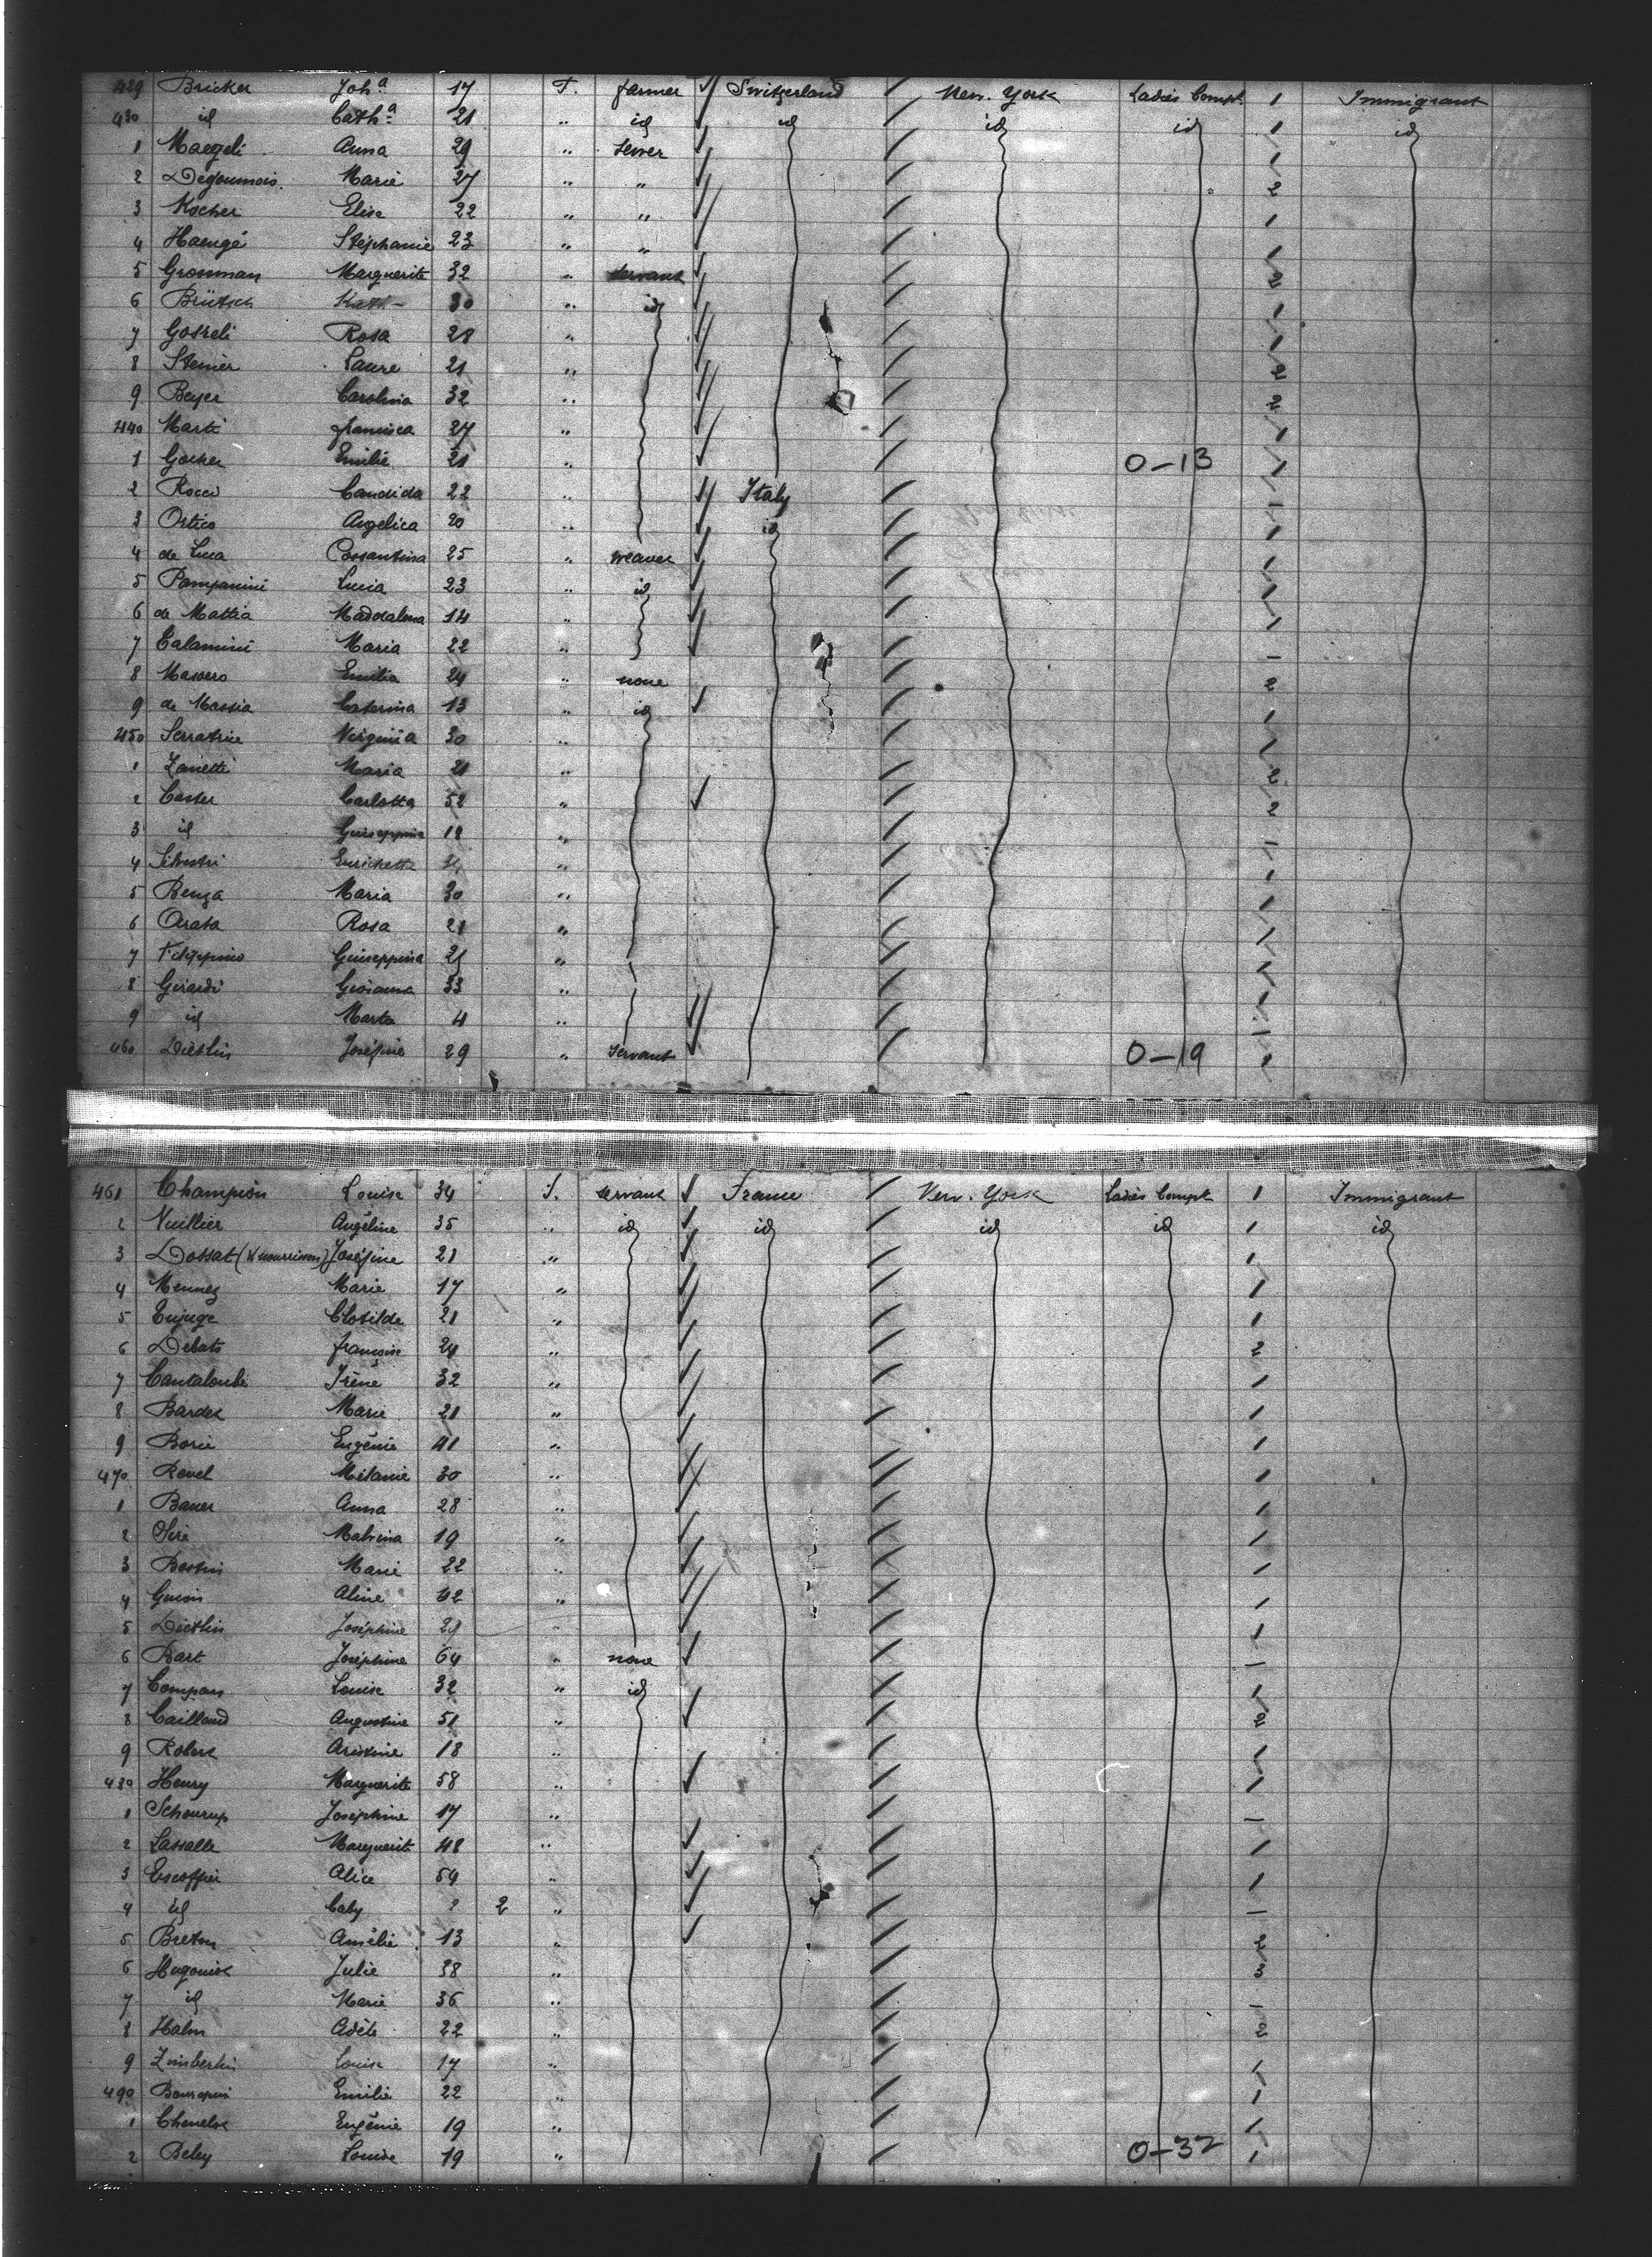 429 Bricker Joh.a 17 F. farmer Switzerland New. York Ladies Compt. 1 Immigrant
430 id Cath.a 21 " id id id id 1 id
1 Maegeli Anna 29 " sewer 1
2 Degoumois Marie 27 " " 2
3 Kocher Elise 22 " " 1
4 Haengé Stéphanie 23 " " 1
5 Grosman Marguerite 32 " servant 2
6 Brütsch Kath 30 " id 1
7 Gosteli Rosa 21 " 1
8 Steiner Laure 21 " 2
9 Beyer Carolina 32 " 2
440 Marti francisca 27 " 1
1 Emilie 21 " 0-13 1
2 Rocci Candida 22 " Italy 1
3 Ortico Angelica 20 " id 1
4 de Luca Cossantina 25 " weaver 1
5 Pampanini Lucia 23 " id 1
6 de Mattia Maddalena 14 " 1
7 Calamini Maria 22 " 1
8 Masoero Emilia 24 " none 2
9 de Massia Caterina 13 " id 1
450 Serratrice Virginia 30 " 1
1 Zanetti Maria 21 " 2
2 Caster Carlotta 52 " 2
3 id Guiseppina 18 " 1
4 Silvestri Enrichetta " 1
5 Benza Maria 30 " 1
6 Arata Rosa 21 " 1
7 Filippino Guiseppina 21 " 1
8 Girardi Giovanna 33 " 1
9 id Marta 4 "
460 Dietlin Joséfine 29 " servant 0-19 1
461 Champion Louise 34 F. servant France New. York Ladies Compt 1 Immigrant
2 Vuillier Angéline 35 " id id id id 1 id
3 Dossat (& nourrisson) Joséfine 21 " 1
4 Mennez Marie 17 " 1
5 Enjuge Clotilde 21 " 1
6 Debats françoise 24 " 2
7 Cantaloube Irène 32 " 1
8 Bardes Marie 21 " 1
9 Borie Eugénie 41 " 1
470 Revel Mélanie 30 " 1
1 Bauer Anna 28 " 1
2 Séré Malvina 19 " 1
3 Bostin Marie 22 " 1
4 Aline 42 " 1
5 Dietlin Joséphine 29 " 1
6 Bart Joséphine 64 " none
7 Compan Louise 32 " id 1
8 Caillaud Augustine 51 " 2
9 Robert Aristine 18 " 1
480 Henry Marguerite 58 " 1
1 Schourup Joséphine 17 "
2 Lassalle Marguerite 48 " 1
3 Escoffier Alice 54 " 1
4 id Caby ? 2 "
5 Breton Amélie 13 " 2
6 Hugonist Julie 38 " 3
7 id Marie 36 "
8 Halm Adèle 22 " 2
9 Zimberlin Louise 17 " 1
490 Emilie 22 " 1
1 Chenelot Eugénie 19 " 1
2 Beley Louise 19 " 0-32 1